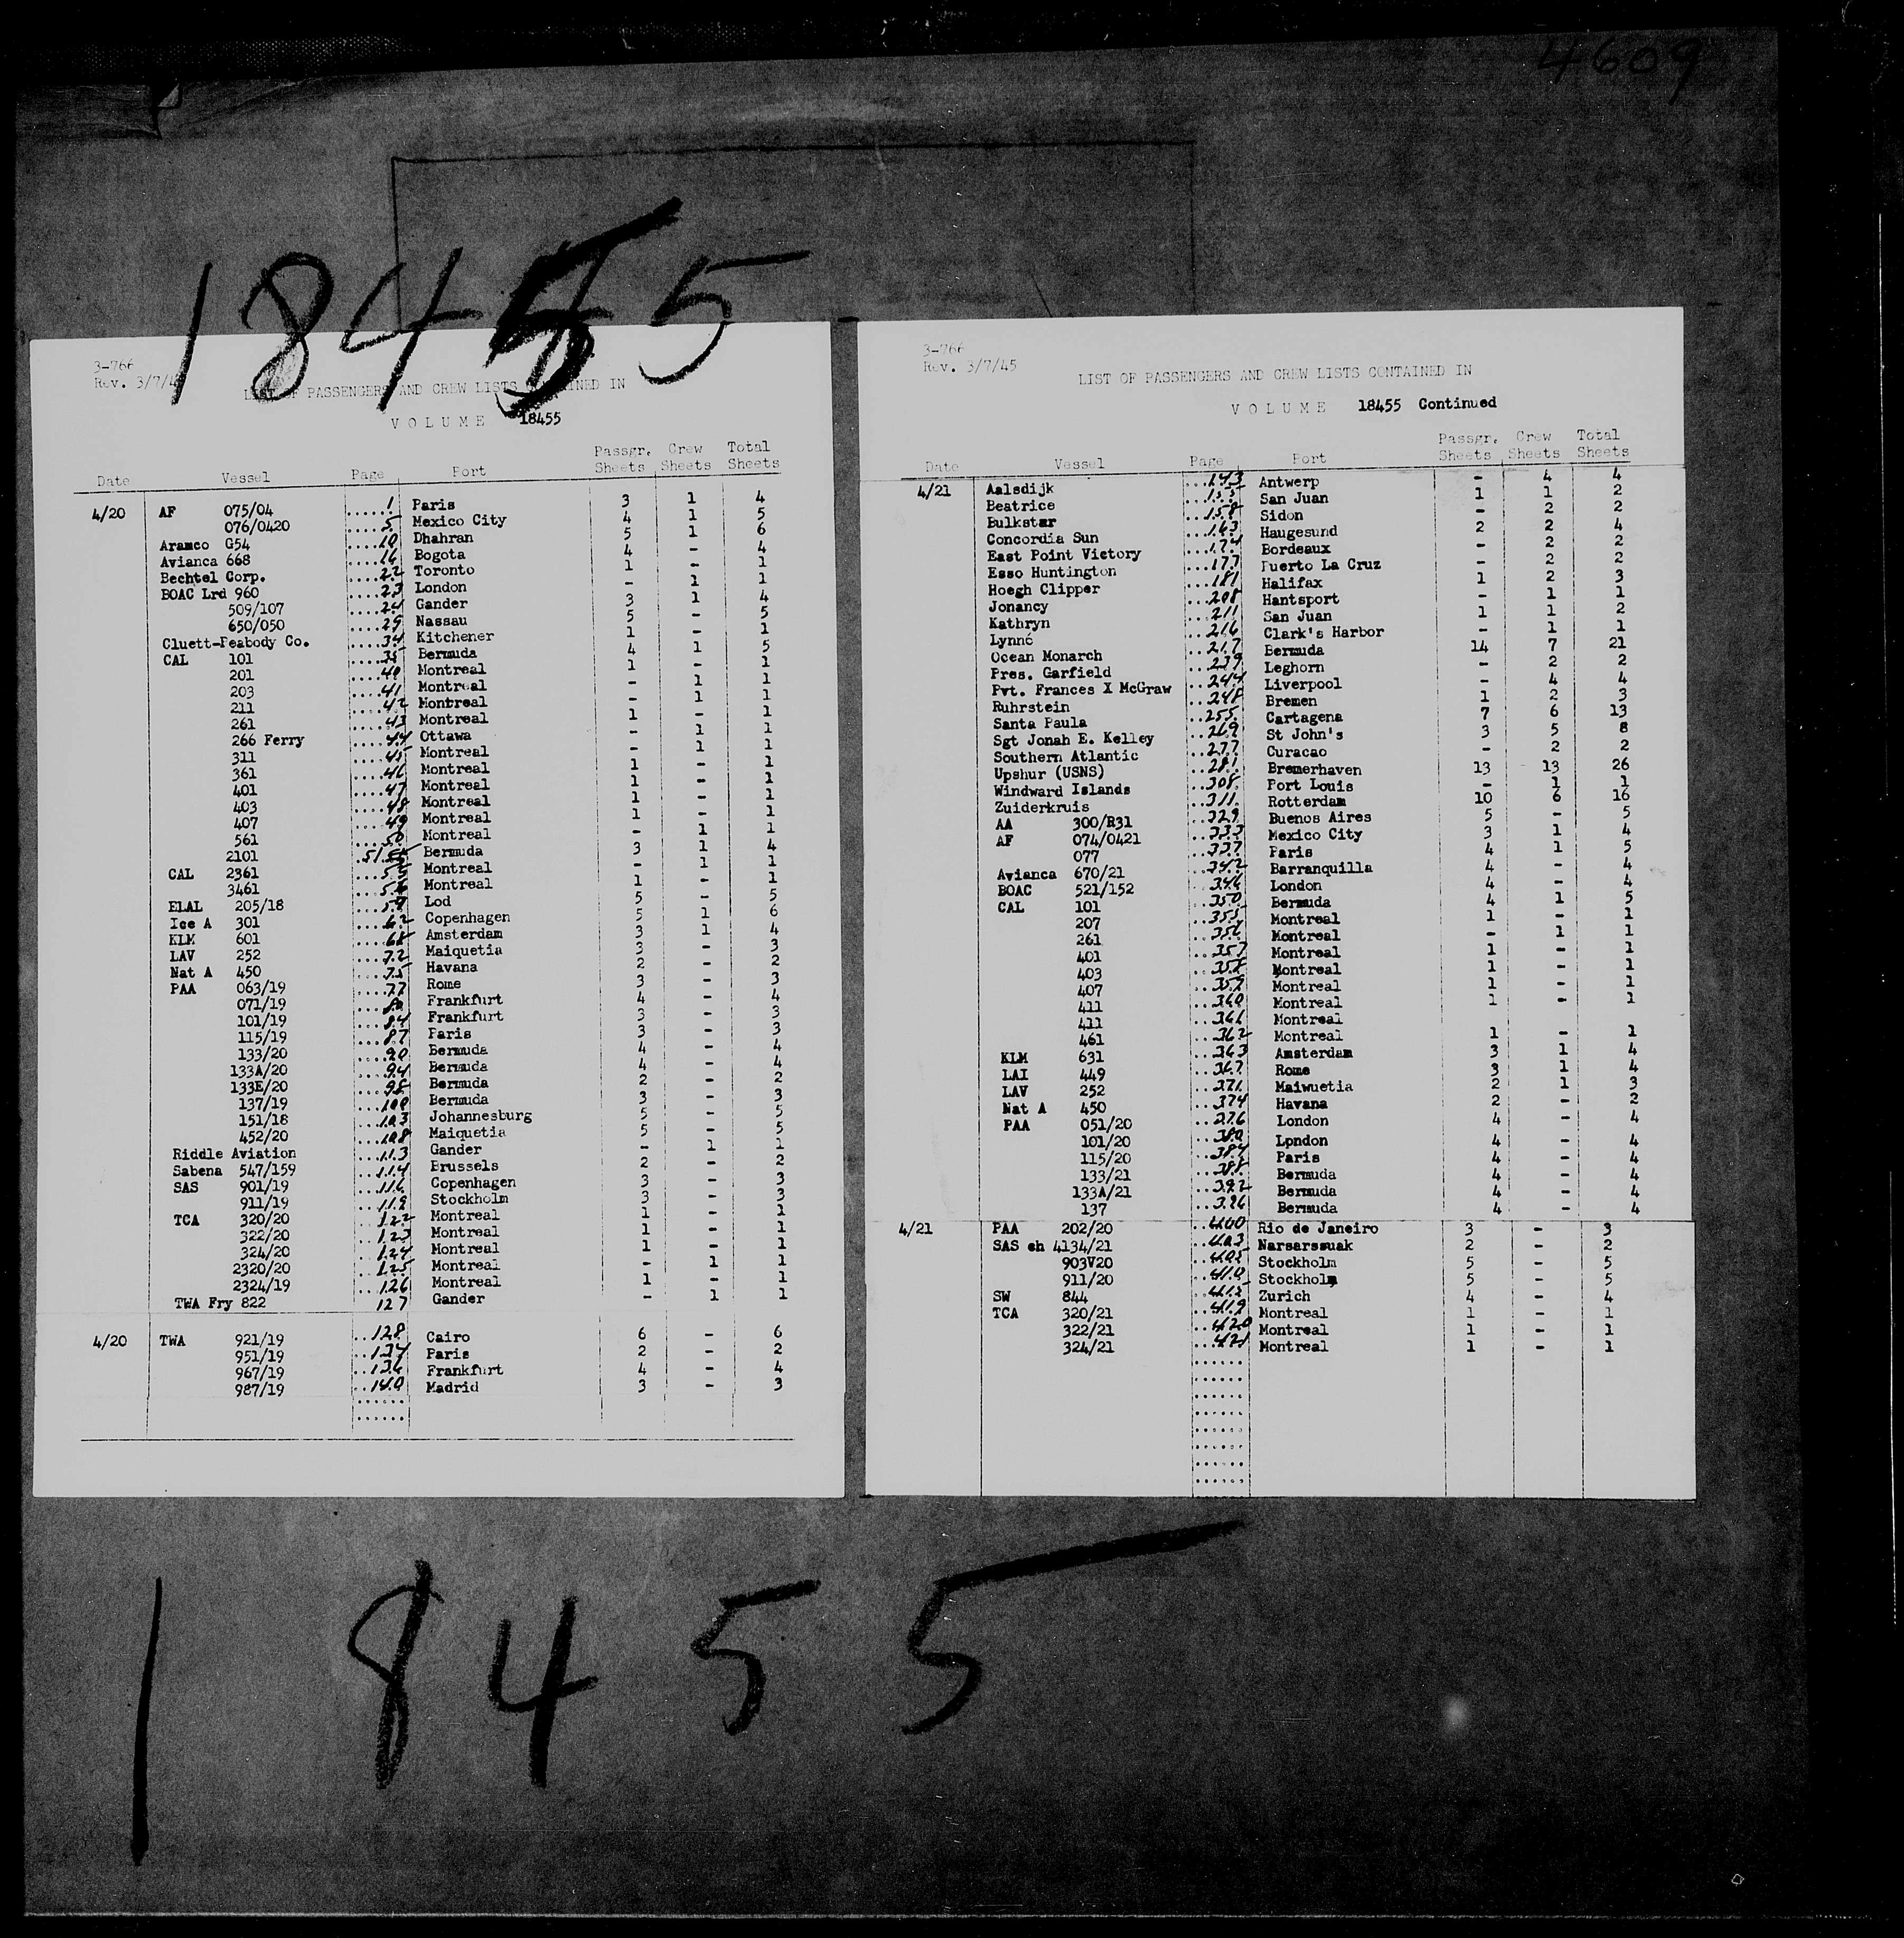 4609
18455
3-766
Rev. 3/7/4
LIST OF PASSENGERS AND CREW LISTS CONTAINED IN
VOLUME 18455
Date Vessel Page Port Passgr. Sheets Crew Sheets Total Sheets
4/20 AF 075/04 ......1 Paris 3 1 4
076/0420 ....5 Mexico City 4 1 5
Aramco G54 ....10 Dhahran 5 1 6
Avianca 668 ....16 Bogota 4 - 4
Bechtel Corp. ....22 Toronto 1 - 1
BOAC Lrd 960 ....23 London - 1 1
509/107 ....24 Gander 3 1 4
650/050 ....29 Nassau 5 - 5
Cluett-Peabody Co. ....34 Kitchener 1 - 1
CAL 101 ....35 Bermuda 4 1 5
201 ....40 Montreal 1 - 1
203 ....41 Montreal - 1 1
211 ....42 Montreal - 1 1
261 ....43 Montreal 1 - 1
266 Ferry ....44 Ottawa - 1 1
311 ....45 Montreal - 1 1
361 ....46 Montreal 1 - 1
401 ....47 Montreal 1 - 1
403 ....48 Montreal 1 - 1
407 ....49 Montreal 1 - 1
561 ....50 Montreal - 1 1
2101 .51 Bermuda 3 1 4
CAL 2361 ....55 Montreal - 1 1
3461 ....56 Montreal 1 - 1
ELAL 205/18 ....57 Lod 5 - 5
Ice A 301 ....62 Copenhagen 5 1 6
KLM 601 ....68 Amsterdam 3 1 4
LAV 252 ....72 Maiquetia 3 - 3
Nat A 450 ....75 Havana 2 - 2
PAA 063/19 ....77 Rome 3 - 3
071/19 ....80 Frankfurt 4 - 4
101/19 ....84 Frankfurt 3 - 3
115/19 ....87 Paris 3 - 3
133/20 ....90 Bermuda 4 - 4
133A/20 ....94 Bermuda 4 - 4
133E/20 ....98 Bermuda 2 - 2
137/19 ...100 Bermuda 3 - 3
151/18 ...103 Johannesburg 5 - 5
452/20 ...108 Maiquetia 5 - 5
Riddle Aviation ...113 Gander - 1 1
Sabena 547/159 ...114 Brussels 2 - 2
SAS 901/19 ...116 Copenhagen 3 - 3
911/19 ...119 Stockholm 3 - 3
TCA 320/20 ...122 Montreal 1 - 1
322/20 ...123 Montreal 1 - 1
324/20 ...124 Montreal 1 - 1
2320/20 ...125 Montreal - 1 1
2324/19 ...126 Montreal 1 - 1
TWA Fry 822 127 Gander - 1 1
4/20 TWA 921/19 ..128 Cairo 6 - 6
951/19 ...134 Paris 2 - 2
967/19 ...136 Frankfurt 4 - 4
987/19 ...140 Madrid 3 - 3
3-766
Rev. 3/7/45
LIST OF PASSENGERS AND CREW LISTS CONTAINED IN
VOLUME 18455 Continued
Date Vessel Page Port Passgr. Sheets Crew Sheets Total Sheets
4/21 Aalsdijk ...143 Antwerp - 4 4
Beatrice ...155 San Juan 1 1 2
Bulkstar ...158 Sidon - 2 2
Concordia Sun ...163 Haugesund 2 2 4
East Point Victory ...174 Bordeaux - 2 2
Esso Huntington ...177 Puerto La Cruz - 2 2
Hoegh Clipper ...181 Halifax 1 2 3
Jonancy ...208 Hantsport - 1 1
Kathryn ...211 San Juan 1 1 2
Lynné ...216 Clark's Harbor - 1 1
Ocean Monarch ..217 Bermuda 14 7 21
Pres. Garfield ...239 Leghorn - 2 2
Pvt. Frances X McGraw ...244 Liverpool - 4 4
Ruhrstein ...248 Bremen 1 2 3
Santa Paula ...255 Cartagena 7 6 13
Sgt Jonah E. Kelley ...269 St John's 3 5 8
Southern Atlantic ...277 Curacao - 2 2
Upshur (USNS) ...281 Bremerhaven 13 13 26
Windward Islands ...308 Port Louis - 1 1
Zuiderkruis ...311 Rotterdam 10 6 16
AA 300/R31 ...329 Buenos Aires 5 - 5
AF 074/0421 ...333 Mexico City 3 1 4
077 ...337 Paris 4 1 5
Avianca 670/21 ...342 Barranquilla 4 - 4
BOAC 521/152 ...346 London 4 - 4
CAL 101 ...350 Bermuda 4 1 5
207 ...355 Montreal 1 - 1
261 ...356 Montreal - 1 1
401 ...357 Montreal 1 - 1
403 ...358 Montreal 1 - 1
407 ...359 Montreal 1 - 1
411 ...360 Montreal 1 - 1
411 ...361 Montreal
461 ...362 Montreal 1 - 1
KLM 631 ...363 Amsterdam 3 1 4
LAI 449 ...367 Rome 3 1 4
LAV 252 ...371 Maiwuetia 2 1 3
Nat A 450 ...374 Havana 2 - 2
PAA 051/20 ...376 London 4 - 4
101/20 ...380 Lpndon 4 - 4
115/20 ...384 Paris 4 - 4
133/21 ...388 Bermuda 4 - 4
133A/21 ...392 Bermuda 4 - 4
137 ...396 Bermuda 4 - 4
4/21 PAA 202/20 ...400 Rio de Janeiro 3 - 3
SAS eh 4134/21 ...403 Narsarssuak 2 - 2
903V20 ...405 Stockholm 5 - 5
911/20 ...410 Stockholm 5 - 5
SW 844 ...415 Zurich 4 - 4
TCA 320/21 ...419 Montreal 1 - 1
322/21 ...420 Montreal 1 - 1
324/21 ...421 Montreal 1 - 1
18455